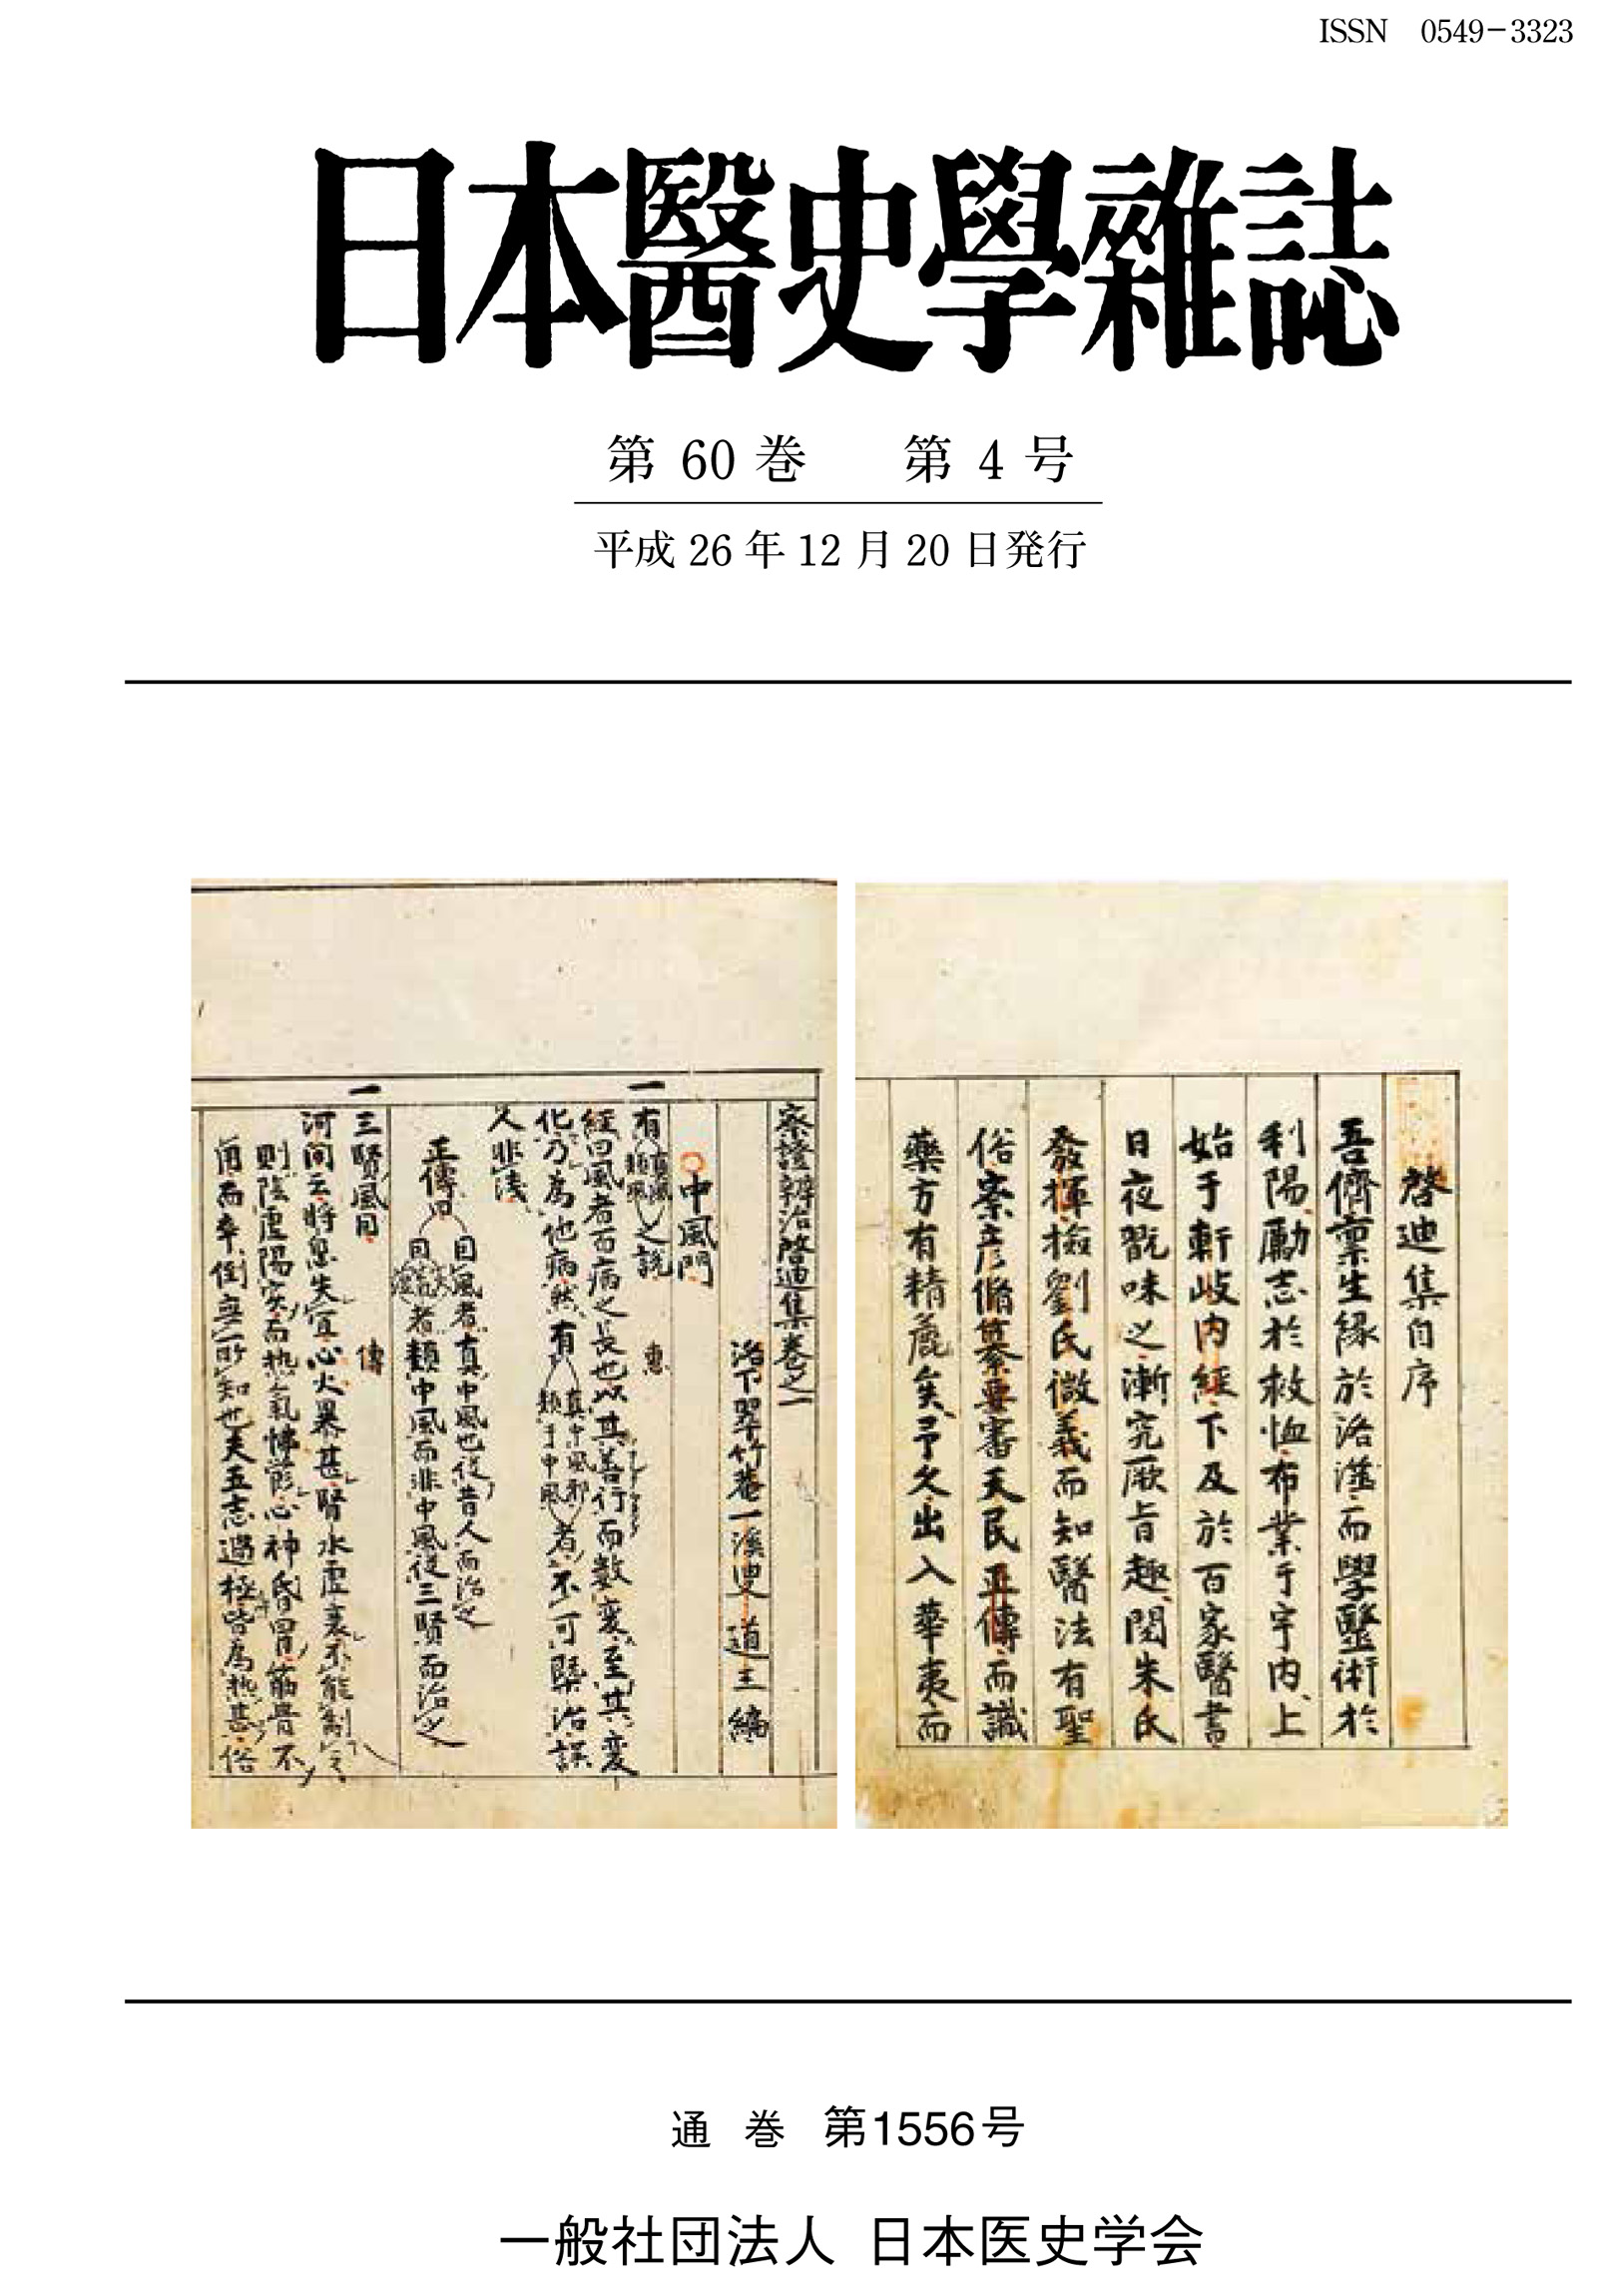 ISSN 0549-3323
日本醫史學雜誌
第 60 巻 第 4 号
平成 26 年 12 月 20 日発行
啓迪集自序
吾儕稟生緣於洛𦶎而學醫術於
利陽勵志於救恤布業于宇内上
始于軒岐内經下及於百家醫書
日夜翫味之漸究厥旨趣閲朱氏
發揮撿劉氏微義而知醫法有聖
俗案彦脩纂要審天民正傳而識
藥方有精麁矣予久出入華夷而
察證辨治啓迪集卷之一
洛下翠竹菴一溪叟道三編
中風門
一
有真風類風之説 惠
經曰風者百病之長也以其善行而数変至其変
化乃為他病然有真中風邪類于中風者不可槩治誤
人非浅
正傳曰
曰風者真中風也従昔人而治之
者類中風而非中風従三賢而治之
一
三賢風同 傳
河間云将息失宜心火暴甚腎水虚衰不能制
則陰虚陽実而热氣怫欝心神昏冒筋骨不
用而卒倒無所知也夫五志過極皆為热甚俗
通 巻 第1556号
一般社団法人 日本医史学会